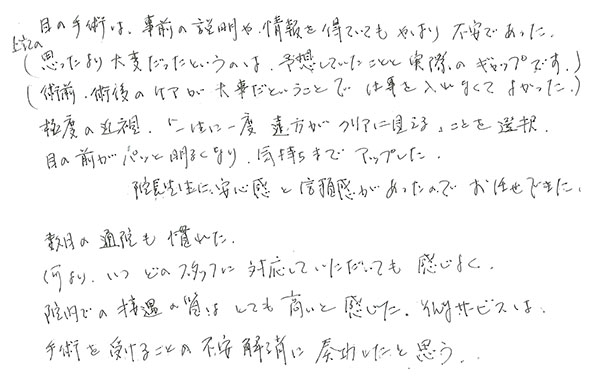 目の手術は、事前の説明や、情報を得ていてもやはり不安であった。
上記の
(思ったより大変だったというのは、予想していたことと実際のギャップです。)
(術前・術後のケアが大事だということで仕事を入れなくてよかった。)
極度の近視。「一生に一度遠方がクリアに見える」ことを選択。
目の前がパッと明るくなり、気持ちまでアップした。
院長先生に、安心感と信頼感があったのでお任せできた。
数日の通院も慣れた。
何より、いつどのスタッフに対応していただいても感じよく、
院内での接遇の質はとても高いと感じた。サービスは、
手術を受けることの不安解消に奏功したと思う。